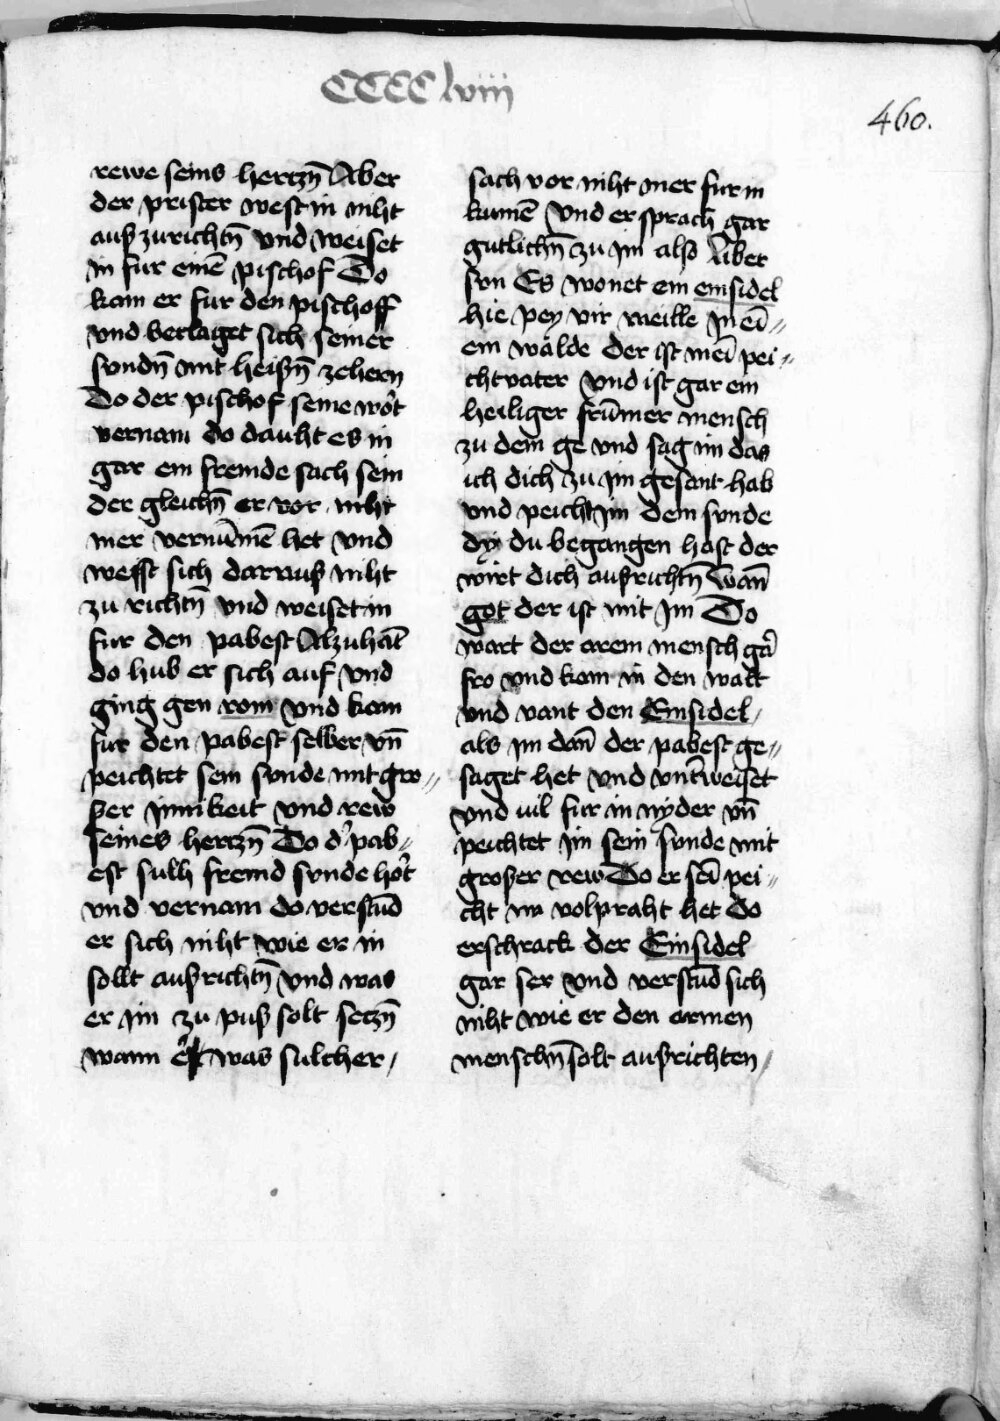 CCCC lviii
460.
rewe seins hertzn̄ Aber
der prister west in niht
auß zurichtn̄ vnd weiset
in fur einē pischof Do
kam er fur den pischoff
vnd verklaget sich seiner
sundn̄ mit heisn̄ zehern
Do der pischof seine wort
vernam do dauht es in
gar ein fremde sach sein
der gleichn̄ er vor niht
mer vernūmē het vnd
wesst sich darauß niht
zu richtn̄ vnd weiset in
fur den pabest Alzuhāt
do hub er sich auf vnd
ging gen rom vnd kam
fur den pabest selber vn̄
peichtet sein sunde mit gro〃
ßer innikeit vnd rew
seines hertzn̄ Do d' pab〃
est sulh fremd sunde hort
vnd vernam do verstūd
er sich niht wie er in
sollt außrichtn̄ vnd was
er im zu puß solt setzn̄
wann er was sulcher/
sach vor niht mer fur in
kumē vnd er sprach gar
gutlichn̄ zu im also Liber
sun Es wonet ein einsidel
hie pey vir meille in ei〃
em walde der ist mei pei〃
chtvater vnd ist gar ein
heiliger frūmer mensch
zu dem ge vnd sag im das
ich dich zu im gesant hab
vnd peicht im dein sunde
dy du begangen hast der
wirt dich außrichtn̄ wan̄
got der ist mit im Do
wart der arem mensch gar
fro vnd kam in den walt
vnd vant den Einsidel/
als im dan̄ der pabest ge〃
saget het vnd vnterweiset
vnd vil fur in nyder vn̄
peichtet im sein sunde mit
großer rew Do er sei pei〃
cht im volpraht het do
erschrack der Einsidel
gar ser vnd verstūd sich
niht wie er den armen
menschn̄ solt außrichten/